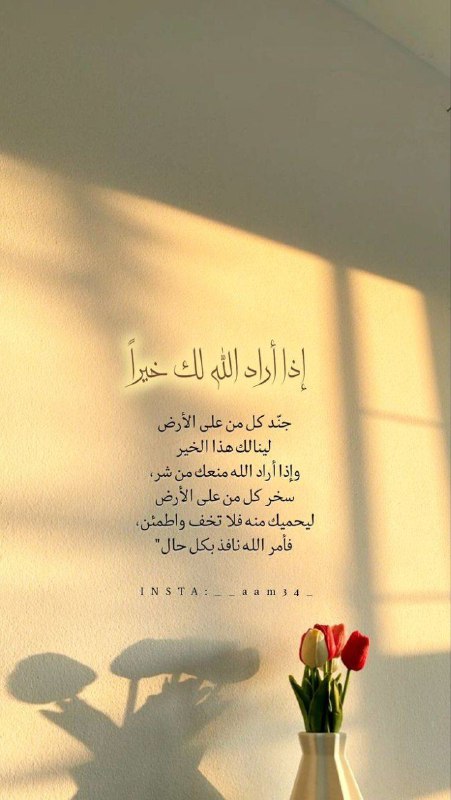 إذا أراد الله لك خيراً
جنّد كل من على الأرض
لينالك هذا الخير
وإذا أراد الله منعك من شر،
سخر كل من على الأرض
ليحميك منه فلا تخف واطمئن،
فأمر الله نافذ بكل حال"
INSTA:__aam34_